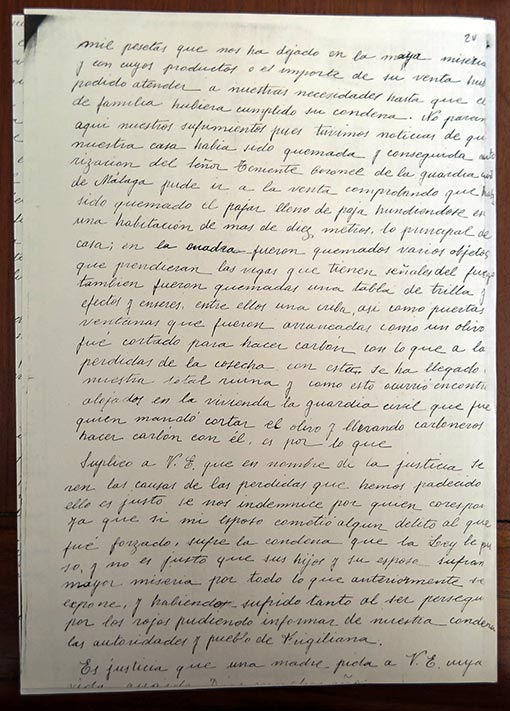 20
mil pesetas que nos ha dejado en la maya miseria
y con cuyos productos o el importe de su venta hub
podido atender a nuestras necesidades hasta que el
de familia hubiera cumplido su condena. No paran
aqui nuestros sufrimientos pues tuvimos noticias de qu
nuestra casa habia sido quemada y conseguida
rizacion del Señor Teniente Coronel de la guardia
de Málaga pude ir a la venta comprobando que
sido quemado el pajar lleno de paja hundiendose en
una habitación de mas de diez metros, lo principal de
casa; en la cuadra fueron quemados varios objetos
que prendieran las vigas que tienen señales del fueg
tambien fueron quemadas una tabla de trilla y
efectos y enseres, entre ellos una criba, asi como puertas
ventanas que fueron arrancadas como un olivo
fue cortado para hacer carbón con lo que a la
perdidas de la cosecha con esta se ha llegado
nuestra total ruina y como esto ocurrió encontr
alojados en la vivienda la guardia civil que fue
quien mandó cortar el olivo y llevando carboneros
hacer carbon con él, es por lo que
Suplico a V. E. que en nombre de la justicia se
ren las causas de las perdidas que hemos padecido
ello es justo se nos indemnice por quien corespon
ya que si mi esposo cometió algun delito al que
fué forzado, sufre la condena que la Ley le pu
so, y no es justo que sus hijos y su esposa sufran
mayor miseria por todo lo que anteriormente se
expone, y habiendo sufrido tanto al ser persegu
por los rojos pudiendo informar de nuestra
las autoridades y pueblo de Frigiliana.
Es justicia que una madre pida a V. E. cuya